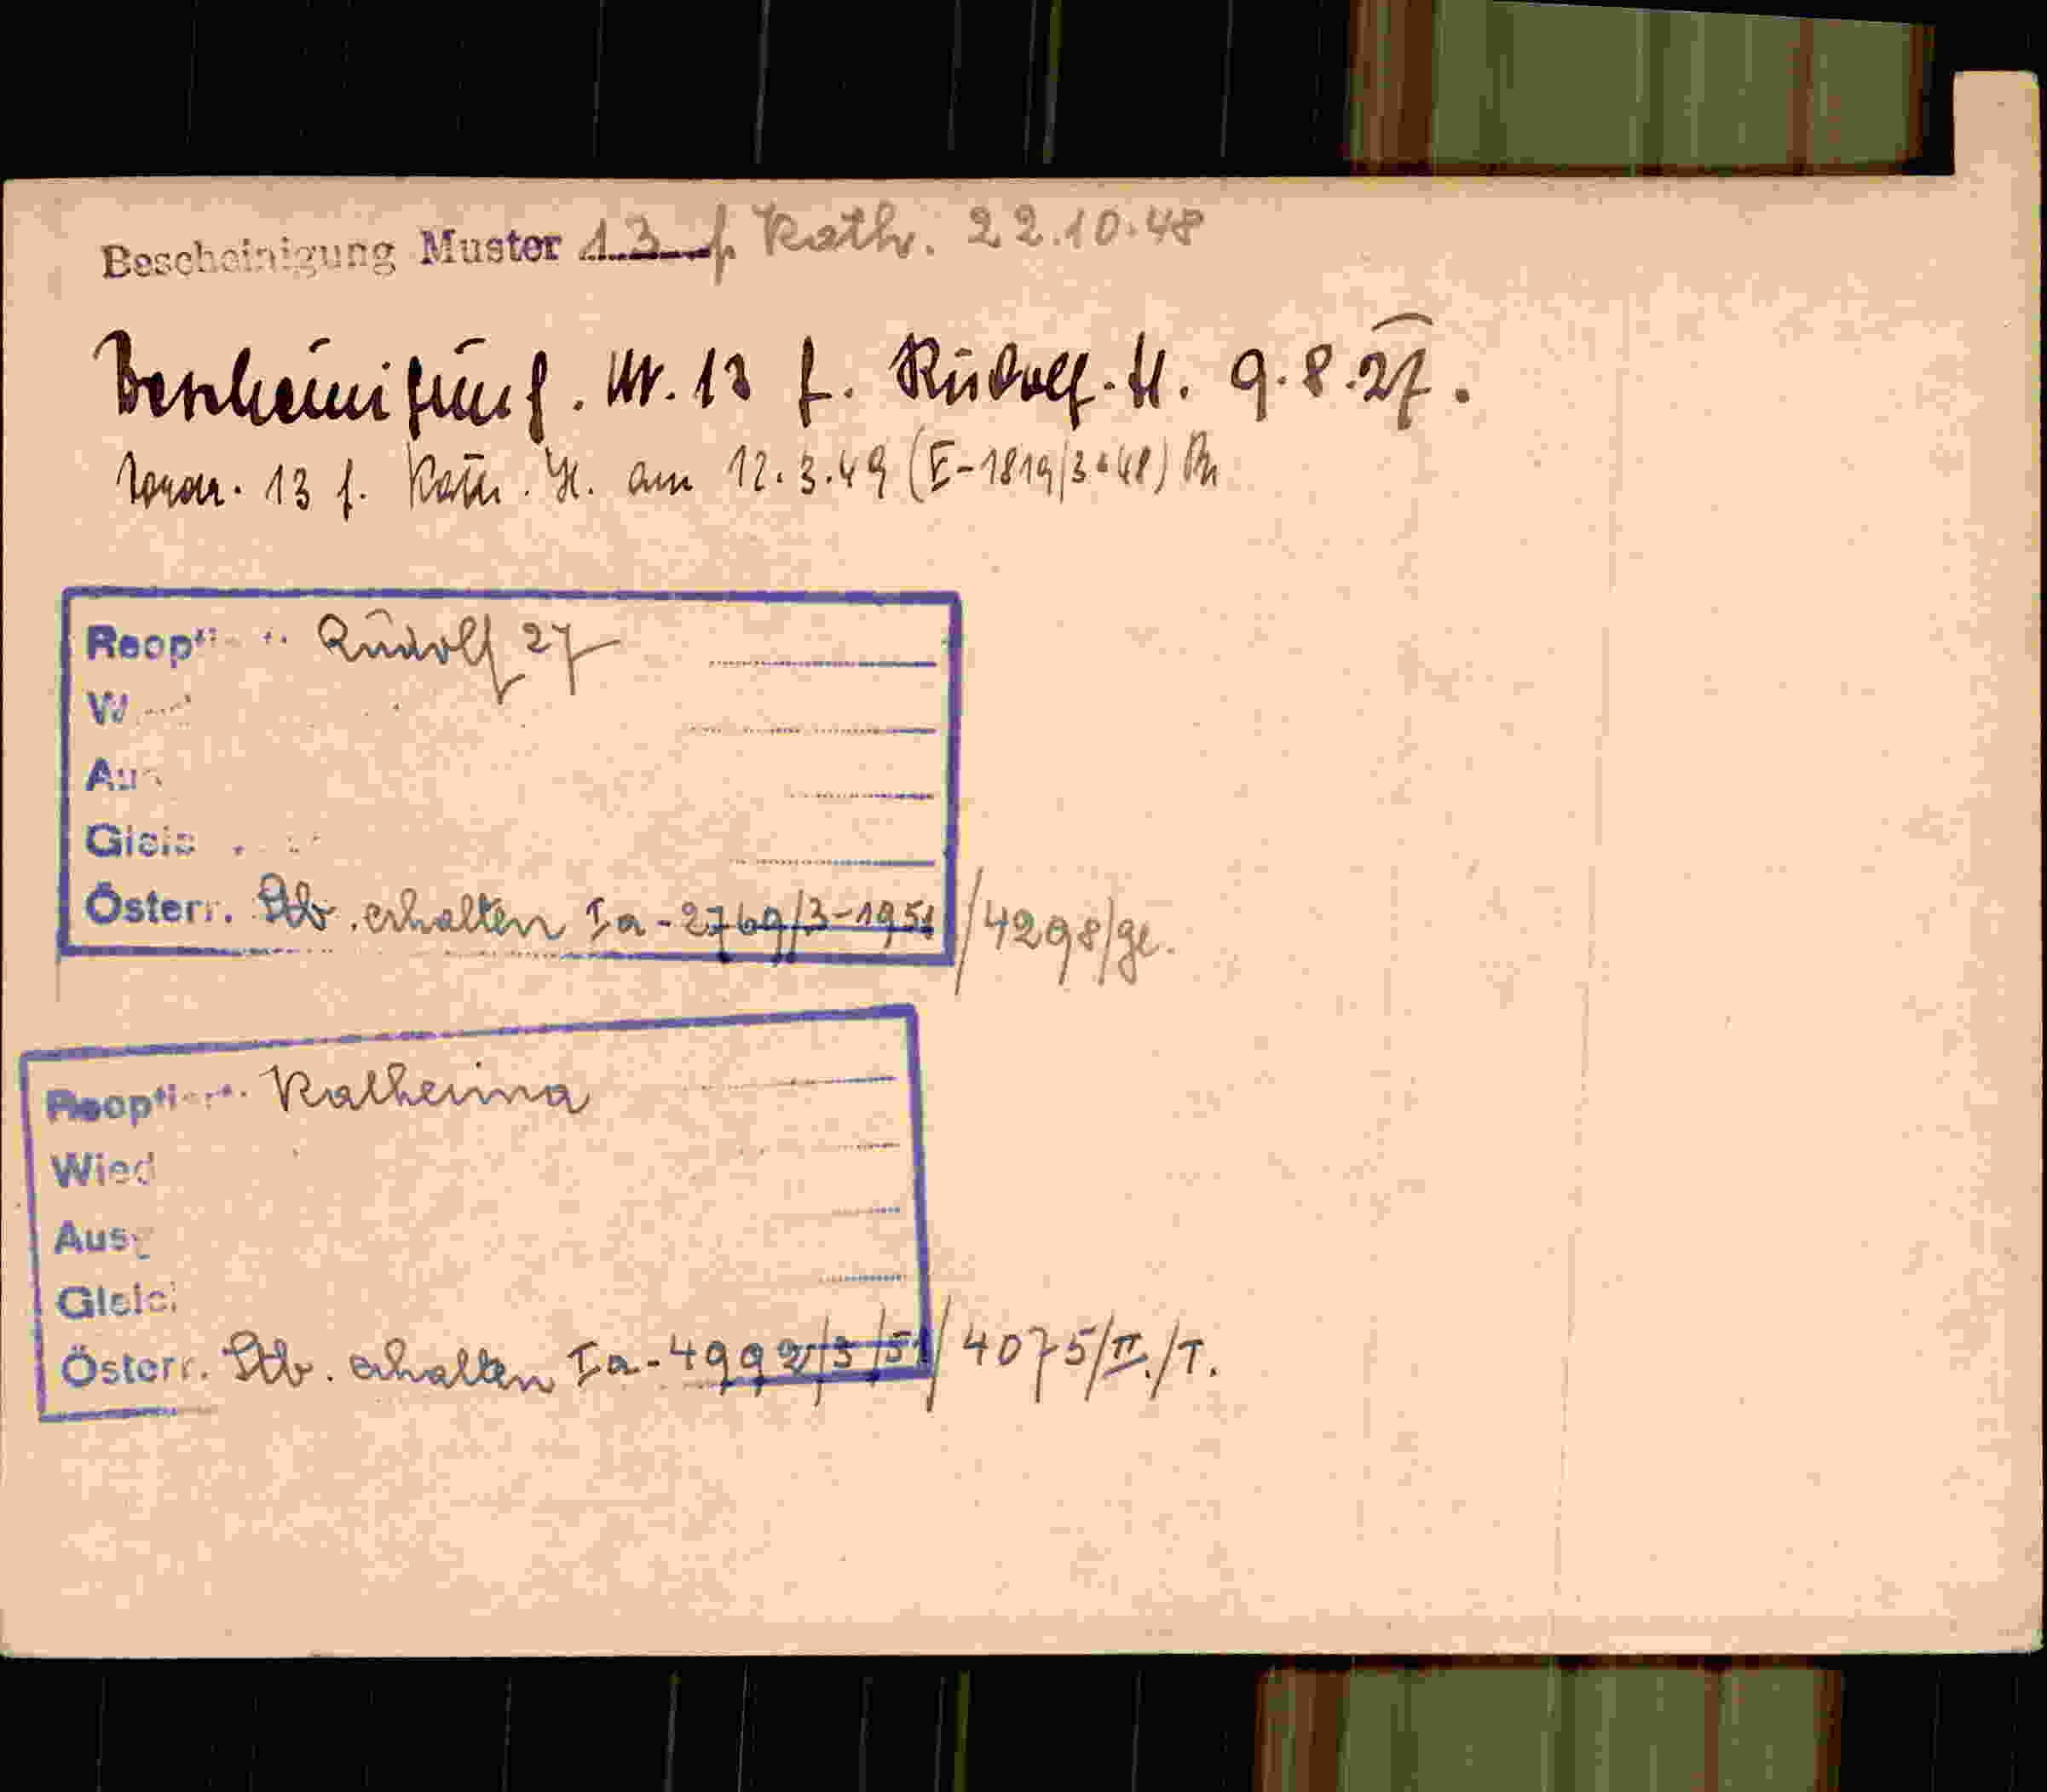 Bescheinigung Muster 13 f. Kath. 22.10.48
Bescheinigung. Nr. 13 f. Rudolf. H. 9.8.27.
13 f. Kath. H. am 12.3.49 (E-1819/3-48)
Reopt Rudolf 27
W
Aus
Gleis
Österr. Stb. erhalten Ia-2769/3-1951/4298/ge.
Reoptiert. Katherina
Wied
Ausg
Gleic
Österr. Stb. erhalten Ia-4992/3/51/4075/II./T.